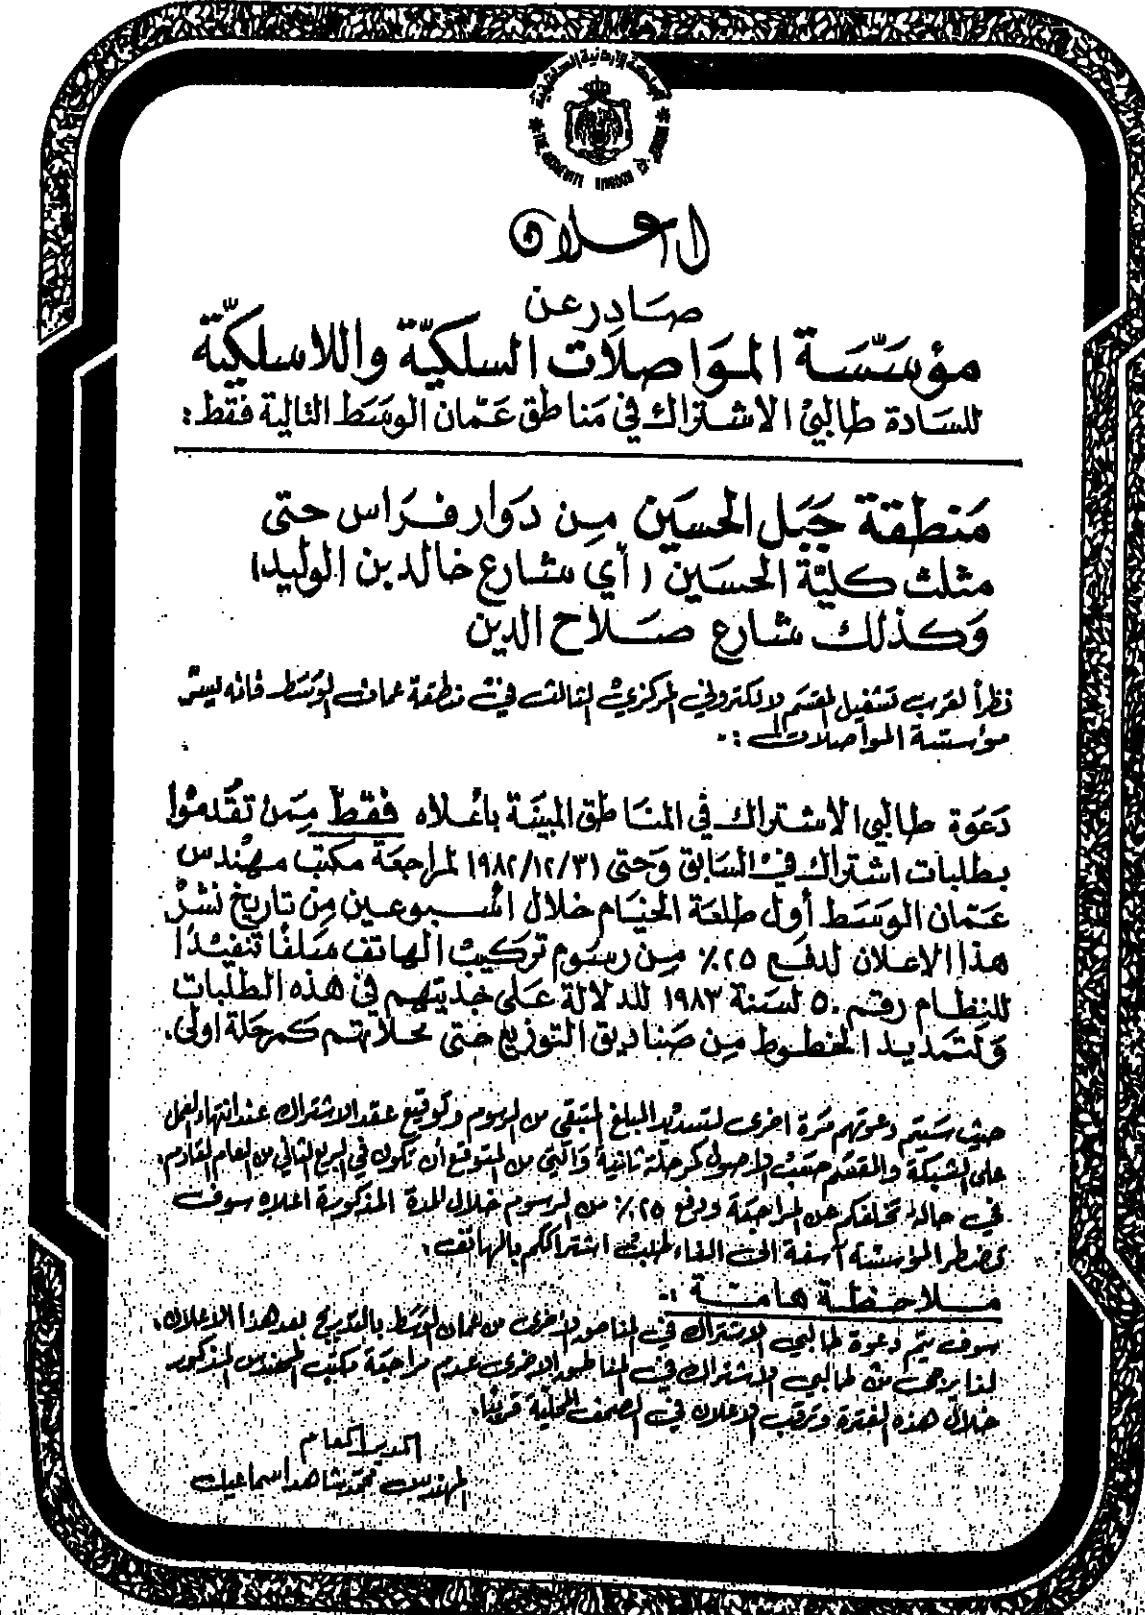 المملكة الأردنية الهاشمية
THE HASHEMITE KINGDOM OF JORDAN
اعلان
صادر عن
مؤسسة المواصلات السلكية واللاسلكية
للسادة طالبي الاشتراك في مناطق عمان الوسط التالية فقط:
منطقة جبل الحسين من دوار فراس حتى
مثلث كلية الحسين (أي شارع خالد بن الوليد)
وكذلك شارع صلاح الدين
نظراً لقرب تشغيل المقسم الالكتروني المركزي الثالث في منطقة عمان الوسط فانه ليسر
مؤسسة المواصلات :-
دعوة طالبي الاشتراك في المناطق المبينة بأعلاه فقط ممن تقدموا
بطلبات اشتراك في السابق وحتى ١٩٨٢/١٢/٣١ لمراجعة مكتب مهندس
عمان الوسط أول طلعة الخيام خلال اسبوعين من تاريخ نشر
هذا الاعلان لدفع ٢٥٪ من رسوم تركيب الهاتف سلفا تنفيذا
للنظام رقم ٥٠ لسنة ١٩٨٣ للدلالة على جديتهم في هذه الطلبات
ولتمديد الخطوط من صناديق التوزيع حتى محلاتهم كمرحلة اولى.
حيث سيتم دعوتهم مرة اخرى لتسديد المبلغ المتبقي من الرسوم وتوقيع عقد الاشتراك عند انتهاء العمل
على الشبكة والمقسم حسب الاصول كمرحلة ثانية والتي من المتوقع أن تكون في الربع الثاني من العام القادم.
في حالة تخلفكم عن المراجعة ودفع ٢٥٪ من الرسوم خلال المدة المذكورة اعلاه سوف
تضطر المؤسسة آسفة الى الغاء طلب اشتراككم بالهاتف.
ملاحظة هامة :-
سوف يتم دعوة طالبي الاشتراك في المناطق الاخرى من عمان الوسط بالتدريج بعد هذا الاعلان،
لذا يرجى من طالبي الاشتراك في المناطق الاخرى عدم مراجعة مكتب المهندس المذكور
خلال هذه الفترة وترقب الاعلان في الصحف المحلية قريبا.
المدير العام
المهندس محمد شاهد اسماعيل